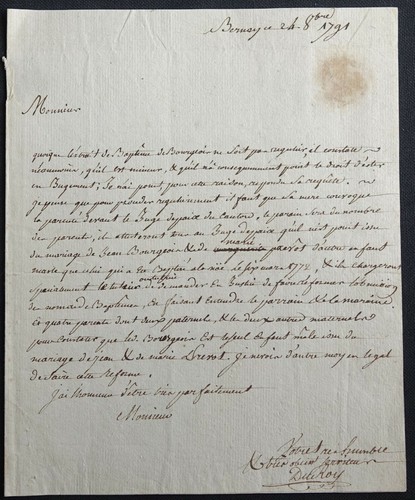 ce 24 8bre 1791
Monsieur
quoique l'extrait de Baptême de Bourgeois ne soit pas regulier, il constate
néanmoins, qu'il est mineur, & qu'il n'a consequemment point le droit d'ester
en Jugement; Je n'ai point, pour cette raison, repondu sa requête. Je
pense que pour proceder regulierement il faut que sa mere convoque
la parenté devant le Juge de paix du Canton. le parain sera du nombre
des parents, ils attesteront au Juge de paix qu'il n'est point issu
du mariage de Jean Bourgeois & de marie d'autre enfant
masle que celui qui a été Baptisé le 1772, & ils chargeront
specialement le tuteur de demander en Justice de faire reformer
de noms de Baptême, en faisant entendre le parrain & la maraine
et quatre parents dont deux paternels, & les deux autres maternels
pour constater que led. Bourgeois est le seul enfant mâle issu du
mariage de Jean & de marie Drevot. Je ne vois d'autre moyen legal
de faire cette reforme.
J'ai l'honneur d'être bien parfaitement
Monsieur
Votre très humble
& très obeist serviteur